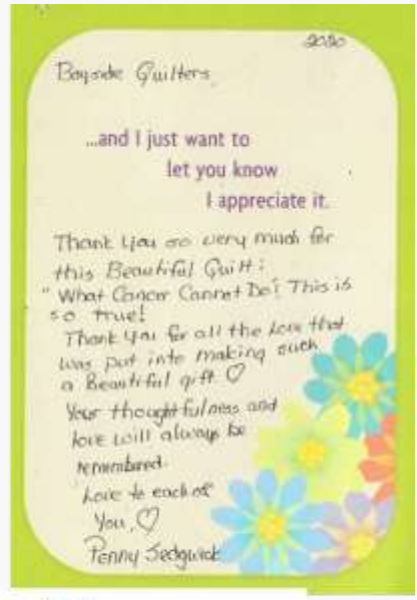 2020
Bayside Quilters,
...and I just want to
let you know
I appreciate it.
Thank you so very much for
this Beautiful Quilt:
"What Cancer Cannot Do". This is
so true!
Thank you for all the love that
was put into making such
a Beautiful gift ♡
Your thoughtfulness and
love will always be
remembered.
Love to each of
You, ♡
Penny Sedgwick